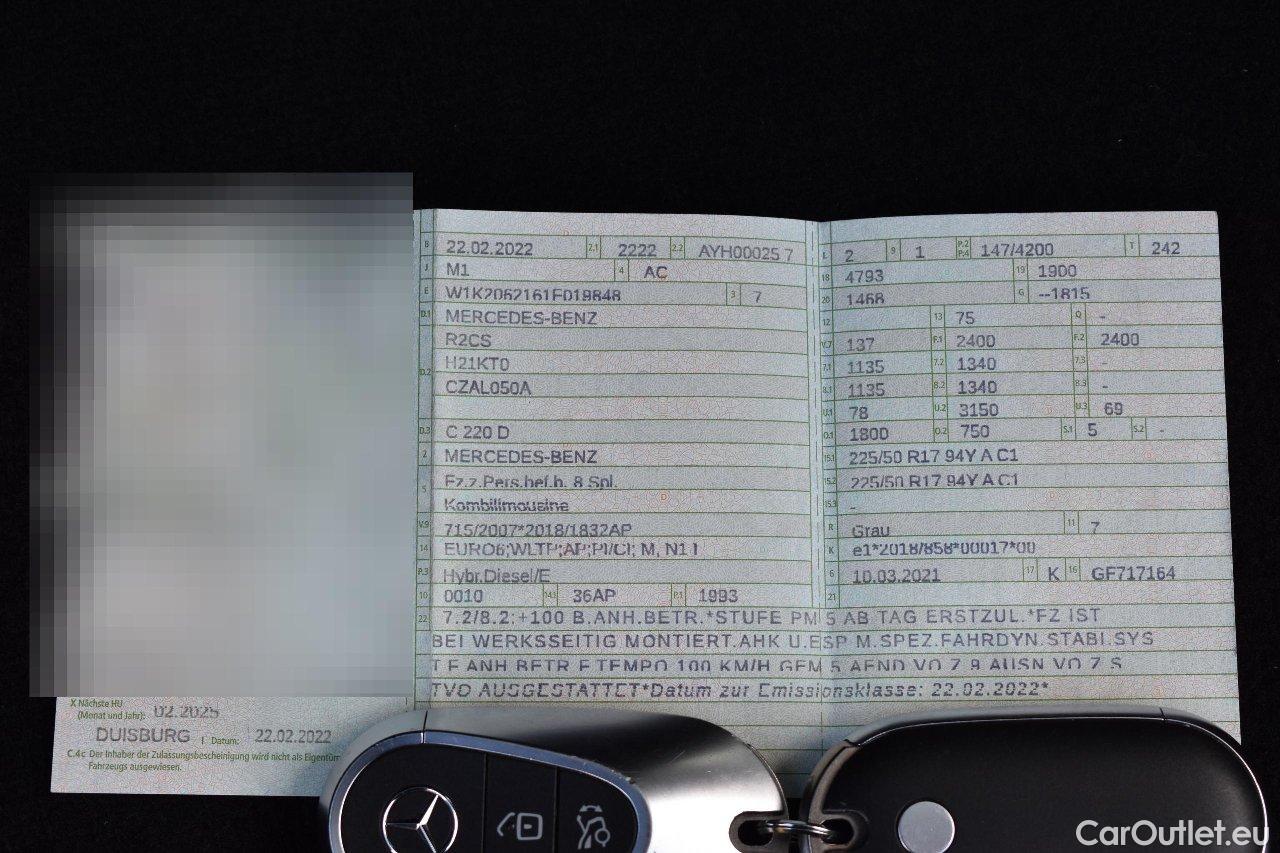 B 22.02.2022 2.1 2222 2.2 AYH00025 7 L 2 9 1 P.2 P.4 147/4200 T 242
J M1 4 AC 18 4793 19 1900
E W1K2062161F019848 3 7 20 1468 G --1815
D.1 MERCEDES-BENZ 12 13 75 Q -
R2CS V.7 137 F.1 2400 F.2 2400
D.2 H21KT0 7.1 1135 7.2 1340 7.3 -
CZAL050A 8.1 1135 8.2 1340 8.3 -
U.1 78 U.2 3150 U.3 69
D.3 C 220 D O.1 1800 O.2 750 S.1 5 S.2 -
2 MERCEDES-BENZ 15.1 225/50 R17 94Y A C1
5 Fz.z.Pers.bef.b. 8 Spl. 15.2 225/50 R17 94Y A C1
Kombilimousine 15.3 -
V.9 715/2007*2018/1832AP R Grau 11 7
14 EURO6;WLTP;AP;PI/CI; M, N1 I K e1*2018/858*00017*00
P.3 Hybr.Diesel/E 6 10.03.2021 17 K 16 GF717164
10 0010 14.1 36AP P.1 1993 21
22 7.2/8.2:+100 B.ANH.BETR.*STUFE PM 5 AB TAG ERSTZUL.*FZ IST
BEI WERKSSEITIG MONTIERT.AHK U.ESP M.SPEZ.FAHRDYN.STABI.SYS
T.F.ANH.BETR.F.TEMPO 100 KM/H GEM.5.AEND.VO.Z.9.AUSN.VO.Z.S
TVO AUSGESTATTET*Datum zur Emissionsklasse: 22.02.2022*
X Nächste HU
(Monat und Jahr): 02.2025
DUISBURG I Datum: 22.02.2022
C.4c Der Inhaber der Zulassungsbescheinigung wird nicht als Eigentüm
Fahrzeugs ausgewiesen.
CarOutlet.eu